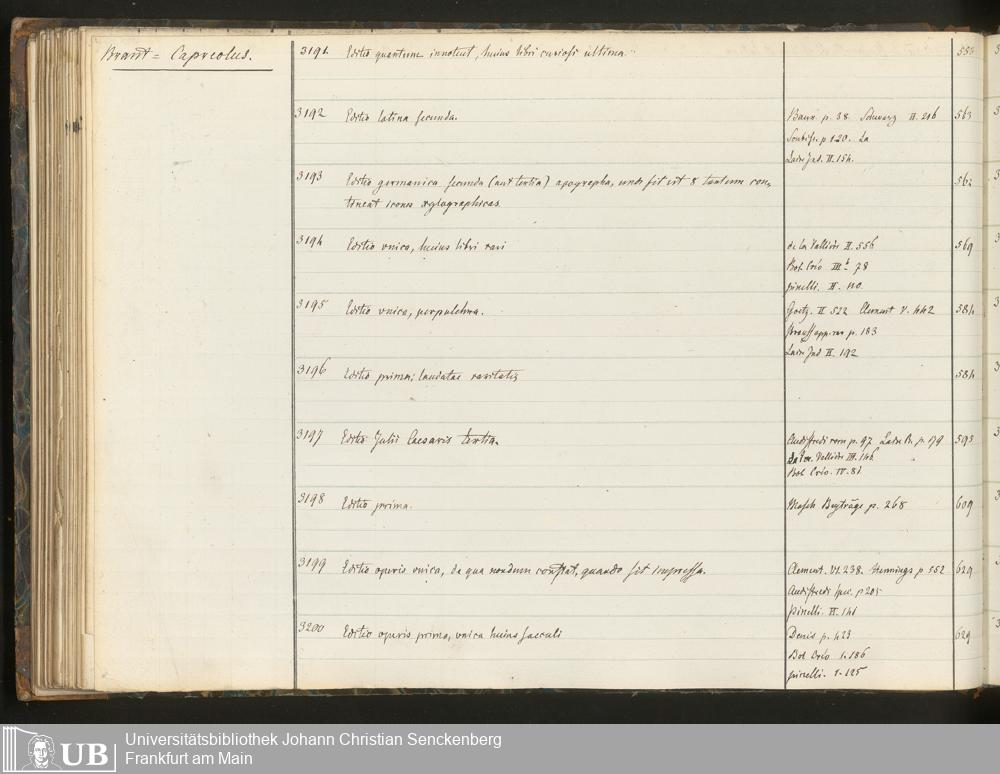 Brant = Capreolus.
3191. Editio quantum innotuit, huius libri curiosi ultima.
3192 Editio latina secunda. Baur. p. 38. Schwarz II. 216 563
p 120. La
Ind. II. 154.
3193 Editio germanica secunda (aut tertia) apographa, unde fit ut 8 tantum con- 562
tineat icones xylographicas.
3194 Editio unica, huius libri rari de la Valliere II. 556 569
Bol. Crio III 78
pinelli. II. 110.
3195 Editio unica, perpulchra. Goetz. II 522 Clement V. 442 584
Strauss app. rar p. 183
Ind II. 192
3196 Editio prima; laudatae raritatis 584
3197 Editio Julii Caesaris tertia. Audiffredi rom p. 97 p. 179 593
Valliere III. 146
Bol Crio. IV. 81
3198 Editio prima. Masch Beyträge p. 268 609
3199 Editio operis unica, de qua nondum constat, quando sit impressa. Clement. VI. 238. Hennings p 552 629
Audiffredi spec. p 205
pinelli. II. 141
3200 Editio operis prima, unica huius saeculi Denis p. 423 629
Bol Crio 1. 186
pinelli. 1. 125
Universitätsbibliothek Johann Christian Senckenberg
Frankfurt am Main
UB